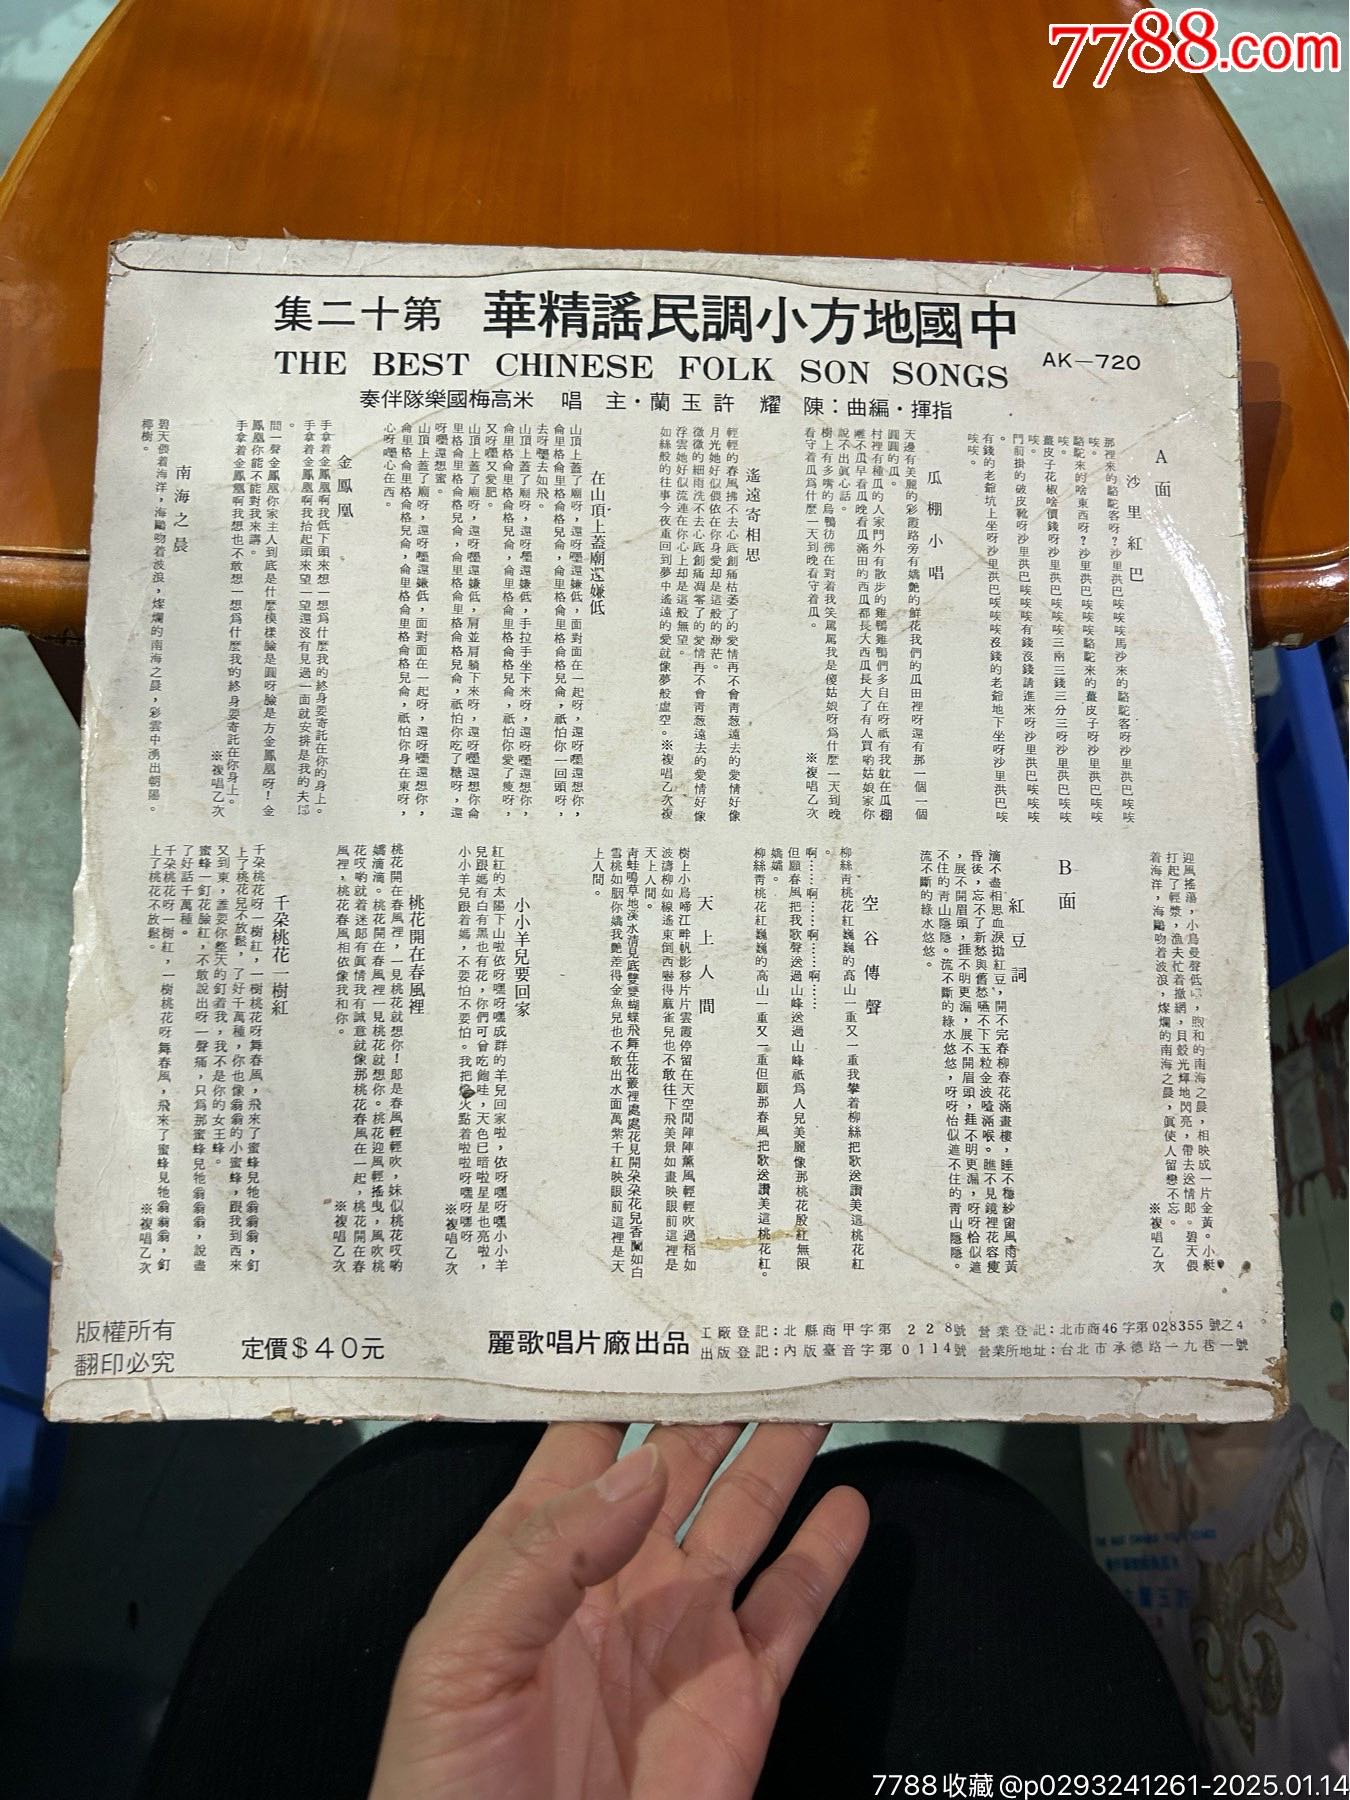 7788.com
中國地方小調民謠精華　第十二集
THE BEST CHINESE FOLK SON SONGS
AK—720
指揮・編曲：陳　耀　許玉蘭・主　唱　米高梅國樂隊伴奏
A面
沙里紅巴
那裡來的駱駝客呀？沙里洪巴咳咳咳馬沙來的駱駝客呀沙里洪巴咳咳
咳。
駱駝來的啥東西呀？沙里洪巴咳咳咳駱駝來的薑皮子呀沙里洪巴咳咳
咳。
薑皮子花椒啥價錢呀沙里洪巴咳咳咳三兩三錢三分三呀沙里洪巴咳咳
咳。
門前掛的破皮靴呀沙里洪巴咳咳咳有錢沒錢請進來呀沙里洪巴咳咳咳
。
有錢的老爺坑上坐呀沙里洪巴咳咳咳沒錢的老爺地下坐呀沙里洪巴咳
咳咳。
瓜棚小唱
天邊有美麗的彩霞路旁有嬌艷的鮮花我們的瓜田裡呀還有那一個一個
圓圓的瓜。
村裡有種瓜的人家門外有散步的雞鴨雞鴨們多自在呀祇有我躭在瓜棚
離不瓜早看瓜晚看瓜滿田的西瓜都長大西瓜長大了有人買喲姑娘家你
說不出眞心話。
樹上有多嘴的烏鴨彷彿在對着我笑罵罵我是傻姑娘呀爲什麼一天到晚
看守着瓜爲什麼一天到晚看守着瓜。
※複唱乙次
遙遠寄相思
輕輕的春風拂不去心底創痛枯萎了的愛情再不會靑葱遠去的愛情好像
月光她好似偎依在你身愛却是這般的渺茫。
微微的細雨洗不去心底創痛凋零了的愛情再不會靑葱遠去的愛情好像
浮雲她好似流連在你心上却是這般無望。
如絲般的往事今夜重回到夢中遙遠的愛就像夢般虛空。※複唱乙次複
在山頂上蓋廟還嫌低
山頂上蓋了廟呀，還呀嚜還嫌低，面對面在一起呀，還呀嚜還想你，
侖里格侖里格侖格兒侖，侖里格侖里格侖格兒侖，祇怕你一回頭呀，
去呀嚜去如飛。
山頂上蓋了廟呀，還呀嚜還嫌低，手拉手坐下來呀，還呀嚜還想你，
侖里格侖里格侖格兒侖，侖里格侖里格侖格兒侖，祇怕你愛了瘦呀，
又呀嚜又愛肥。
山頂上蓋了廟呀，還呀嚜還嫌低，肩並肩躺下來呀，還呀嚜還想你侖
里格侖里格侖格兒侖，侖里格侖里格侖格兒侖，祇怕你吃了糖呀，還
呀嚜還想蜜。
山頂上蓋了廟呀，還呀嚜還嫌低，面對面在一起呀，還呀嚜還想你，
侖里格侖里格侖格兒侖，侖里格侖里格侖格兒侖，祇怕你身在東呀，
心呀嚜心在西。
金鳳凰
手拿着金鳳凰啊我低下頭來想一想爲什麼我的終身要寄託在你的身上。
手拿着金鳳凰啊我抬起頭來望一望還沒有見過一面就安排是我的夫
。
問一聲金鳳凰你家主人到底是什麼模樣臉是圓呀臉是方金鳳凰呀！金
鳳凰你能不能對我來講。
手拿着金鳳凰啊我想也不敢想一想爲什麼我的終身要寄託在你身上。
※複唱乙次
南海之晨
碧天偎着海洋，海鷗吻着波浪，燦爛的南海之晨，彩雲中湧出朝陽。
椰樹
迎風搖蕩，小鳥曼聲低，煦和的南海之晨，相映成一片金黃。小艇
打起了輕漿，漁夫忙着撒網，貝殼光輝地閃亮，帶去送情郎。碧天偎
着海洋，海鷗吻着波浪，燦爛的南海之晨，眞使人留戀不忘。
※複唱乙次
B面
紅豆詞
滴不盡相思血淚拋紅豆，開不完春柳春花滿畫樓，睡不穩紗窗風雨黃
昏後，忘不了新愁與舊愁嚥不下玉粒金波噎滿喉。瞧不見鏡裡花容瘦
，展不開眉頭，捱不明更漏，展不開眉頭，捱不明更漏，呀呀恰似遮
不住的靑山隱隱。流不斷的綠水悠悠，呀呀恰似遮不住的靑山隱隱。
流不斷的綠水悠悠。
空谷傳聲
柳絲靑桃花紅巍巍的高山一重又一重我攀着柳絲把歌送讚美這桃花紅
。
啊……啊………啊………啊……
但願春風把我歌聲送過山峰送過山山峰祇爲人兒美麗像那桃花殷紅無限
嬌嬌。
柳絲靑桃花紅巍巍的高山一重又一重但願那春風把歌送讚美這桃花紅。
天上人間
樹上小鳥啼江畔帆影移片片雲霞停留在天空間陣陣薰風輕輕吹過稻如
波濤柳如線遙東倒西嚇得麻雀兒也不敢往下飛美景如畫映眼前這裡是
天上人間。
靑蛙鳴草地溪水清見底雙雙蝴蝶飛舞在花叢裡處處花見開朵朵花兒香蘭如白
雪桃如胭你嬌我艷差得金魚兒也不敢出水面萬紫千紅映眼前這裡是天
上人間。
小小羊兒要回家
紅紅的太陽下山啦依呀嘿呀嘿成群的羊兒回家啦，依呀嘿呀嘿小小羊
兒跟媽有白有黑也有花，你們可曾吃飽哇，天色巳暗啦星星也亮啦，
小小羊兒跟着媽，不要怕不要怕。我把燈火點着啦啦呀呀嘿呀嘿呀
※複唱乙次
桃花開在春風裡
桃花開在春風裡，一見桃花就想你！郎是春風輕輕吹，妹似桃花哎喲
嬌滴滴。桃花開在春風裡一見桃花就想你。桃花迎風輕搖曳，風吹桃
花哎喲就着迷郎有眞情我有誠意就像那桃花春風在一起，桃花開在春
風裡，桃花春風相依像我和你。
※複唱乙次
千朶桃花一樹紅
千朶桃花呀一樹紅，一樹桃花呀舞春風，飛來了蜜蜂兒牠翁翁翁，釘
上了桃花兒不放鬆，了好千萬種，你也像翁翁的小蜜蜂，跟我到西來
又到東，誰要你整天的釘着我，我不是你的女王蜂。
蜜蜂一釘花臉紅，不敢說出呀一聲痛，只爲那蜜蜂兒牠翁翁翁，說盡
了好話千萬種。
千朶桃花呀一樹紅，一樹桃花呀舞春風，飛來了蜜蜂兒牠翁翁翁，釘
上了桃花不放鬆。
※複唱乙次
版權所有
翻印必究
定價$40元
麗歌唱片廠出品
工廠登記：北縣商甲字第228號　營業登記：北市商46字第028355號之4
出版登記：內版臺音字第0114號　營業所地址：台北市承德路一九巷一號
7788收藏@p0293241261-2025.01.14